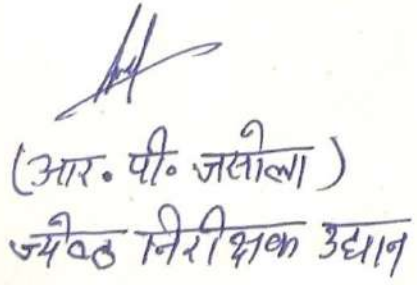 (आर॰ पी॰ जसोला)
ज्येष्ठ निरीक्षक उद्यान